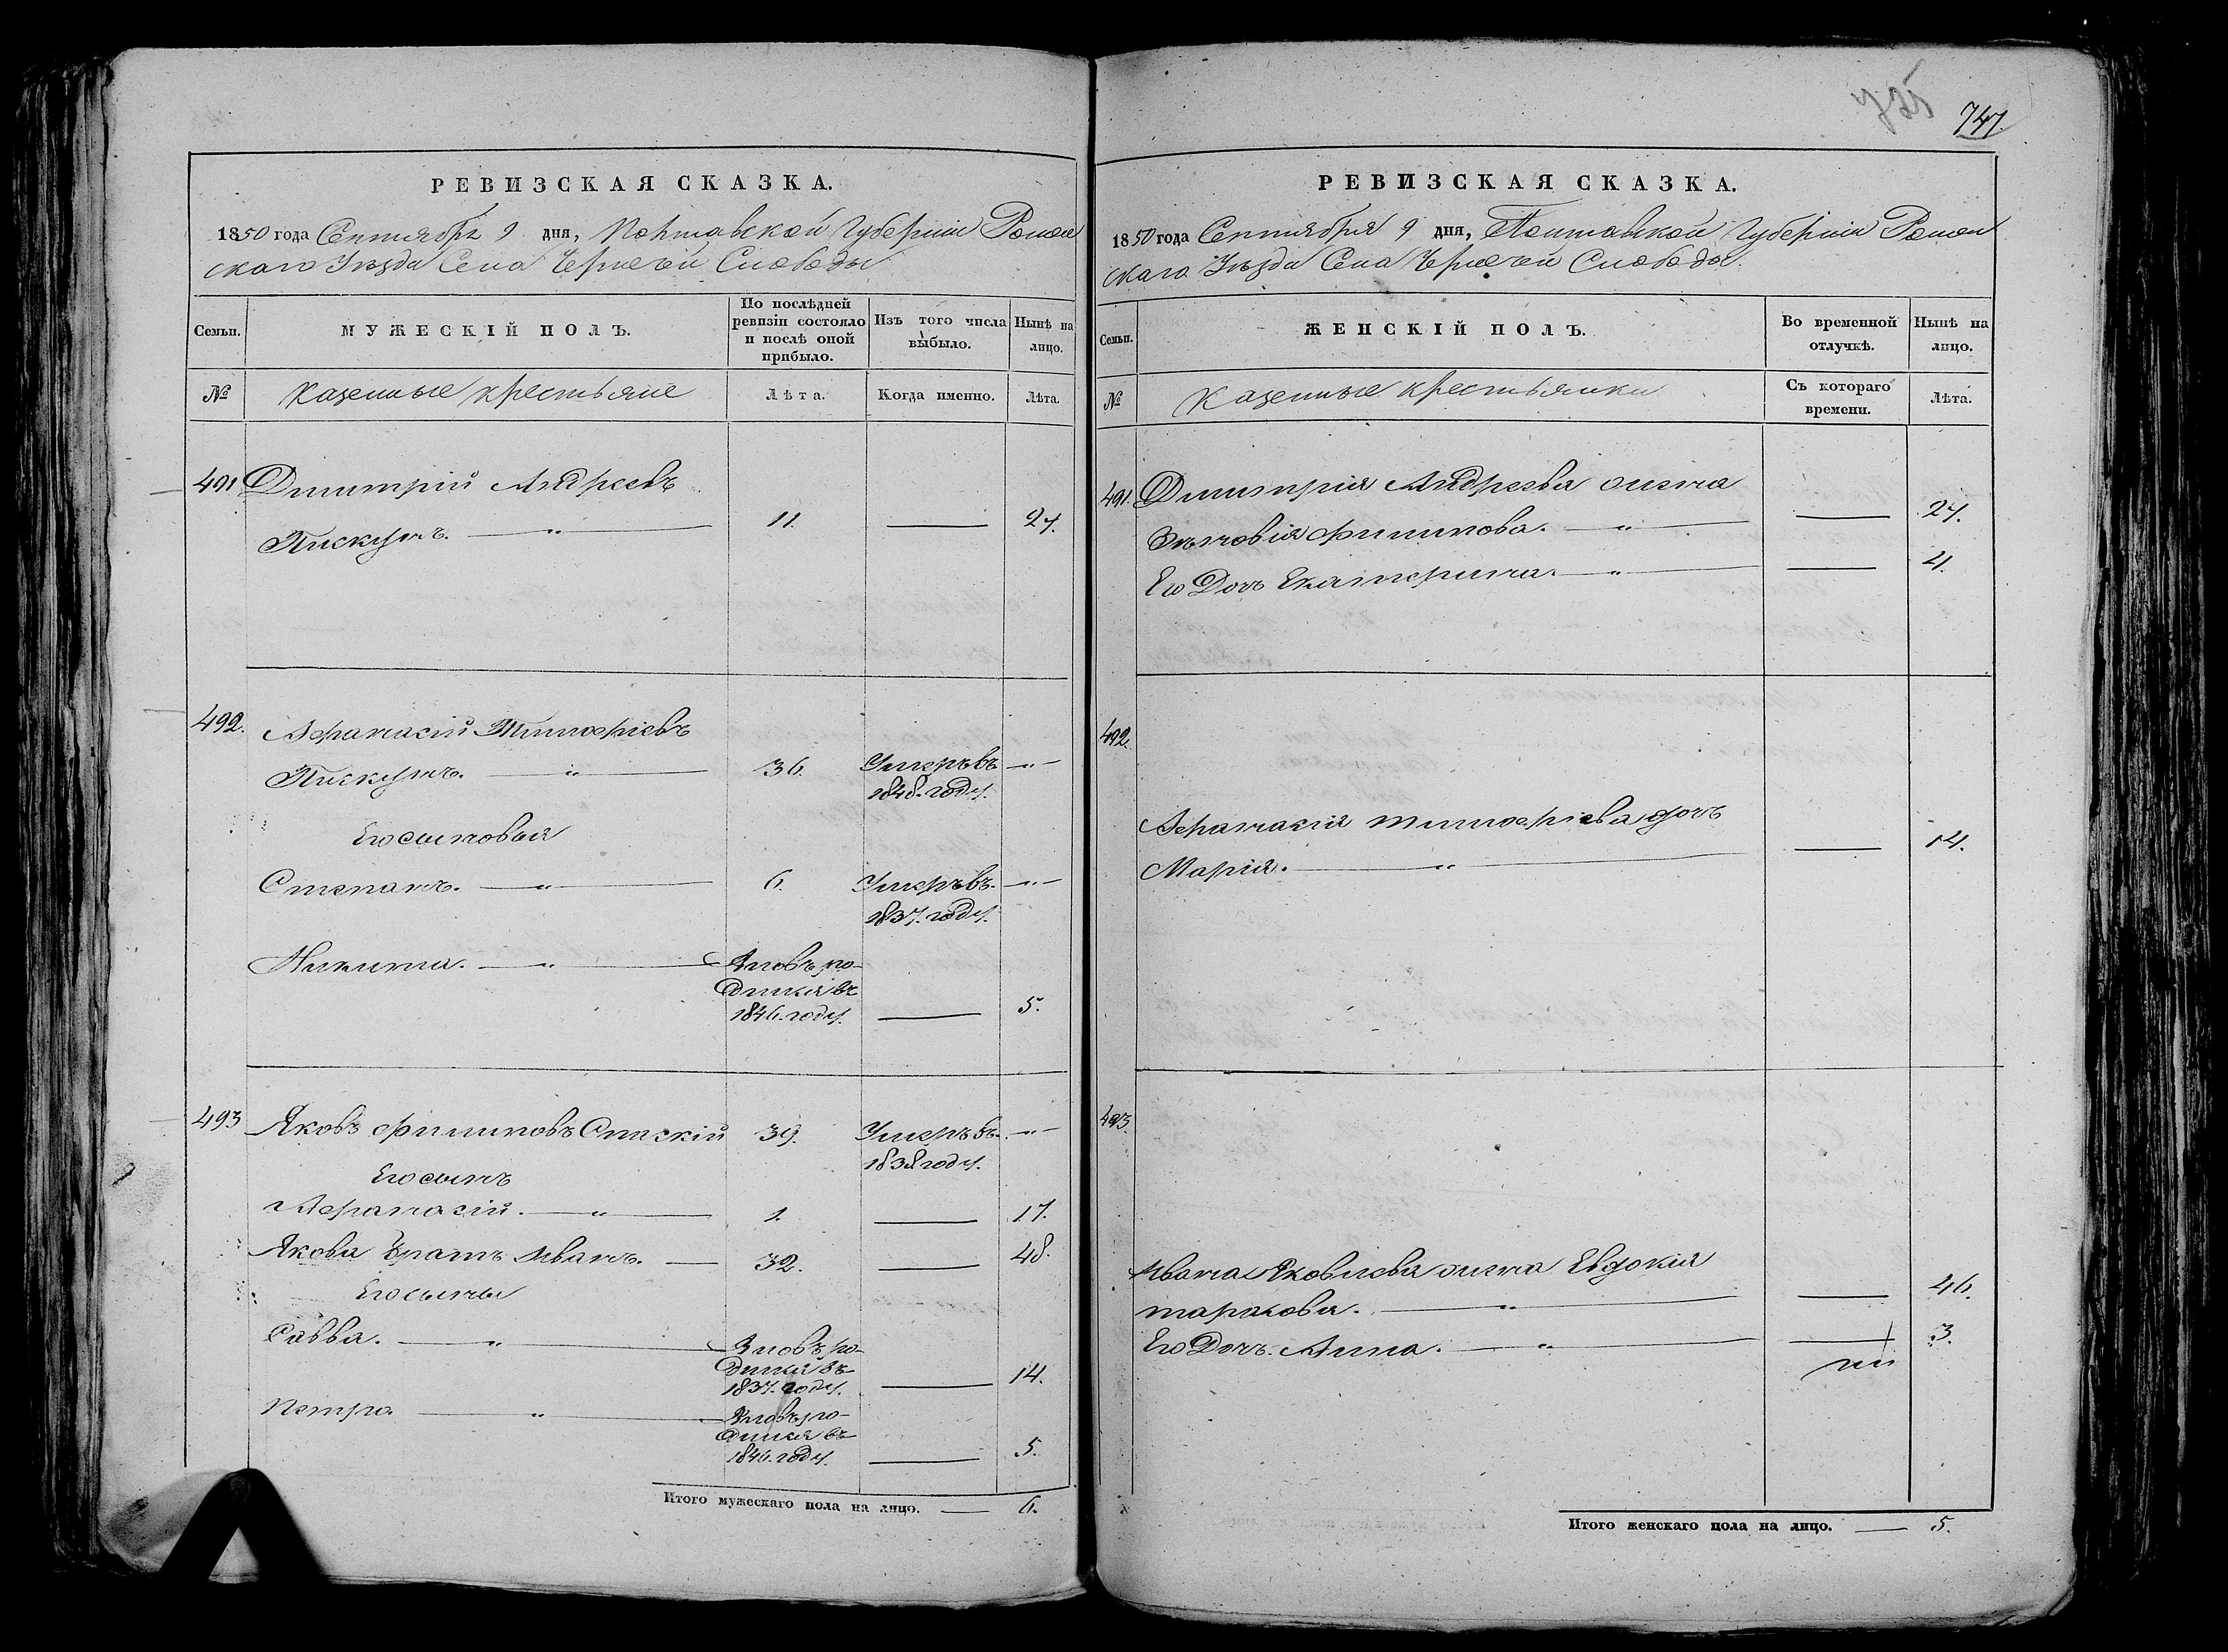 РЕВИЗСКАЯ СКАЗКА.
1850 года Сентября 9 дня, Полтавской Губерніи Ромен
скаго Уѣзда Села Чернечей Слободы
Семьи.
МУЖЕСКІЙ ПОЛЪ.
По послѣдней ревизіи состояло и послѣ оной прибыло.
Изъ того числа выбыло.
Нынѣ на лицо.
№
Казенные крестьяне
Лѣта.
Когда именно.
Лѣта.
491 Димитрій Андреевъ
Пискунъ. — " — 11. — 27.
492. Афанасій Тимофіевъ
Пискунъ. — " — 36. Умеръ въ — " —
1848. году.
Его сыновья
Степанъ. — " — 6. Умеръ въ. — " —
1837. году.
Никита. — " — Вновь ро-
дился въ
1846. году. — 5.
493 Яковъ Филиповъ Спаскій 39. Умеръ въ. — " —
1838 году.
Его сынъ
Афанасій. — " — 1. — 17.
Якова братъ Иванъ. — 32. — 48.
Его сыны
Савва. — " — Вновь ро-
дился въ
1837. году. — 14.
Петро — " — Вновь ро-
дился въ
1846. году. — 5.
Итого мужескаго пола на лицо. — 6.
747.
РЕВИЗСКАЯ СКАЗКА.
1850 года Сентября 9 дня, Полтавской Губерніи Ромен
скаго Уѣзда Села Чернечей Слободы.
Семьи.
ЖЕНСКІЙ ПОЛЪ.
Во временной отлучкѣ.
Нынѣ на лицо.
№
Казенные крестьянки
Съ котораго времени.
Лѣта.
491. Димитрія Андреева жена
Зѣновія Филипова. — " — — 27.
Его Дочь Екатерина. — " — — 4.
492.
Афанасія Тимофіева дочь
Марія. — " — — 14.
493.
Ивана Яковлева жена Евдокія
тарасова. — " — — 46.
Его Дочь. Анна. — " — — 3.
Итого женскаго пола на лицо. — 5.